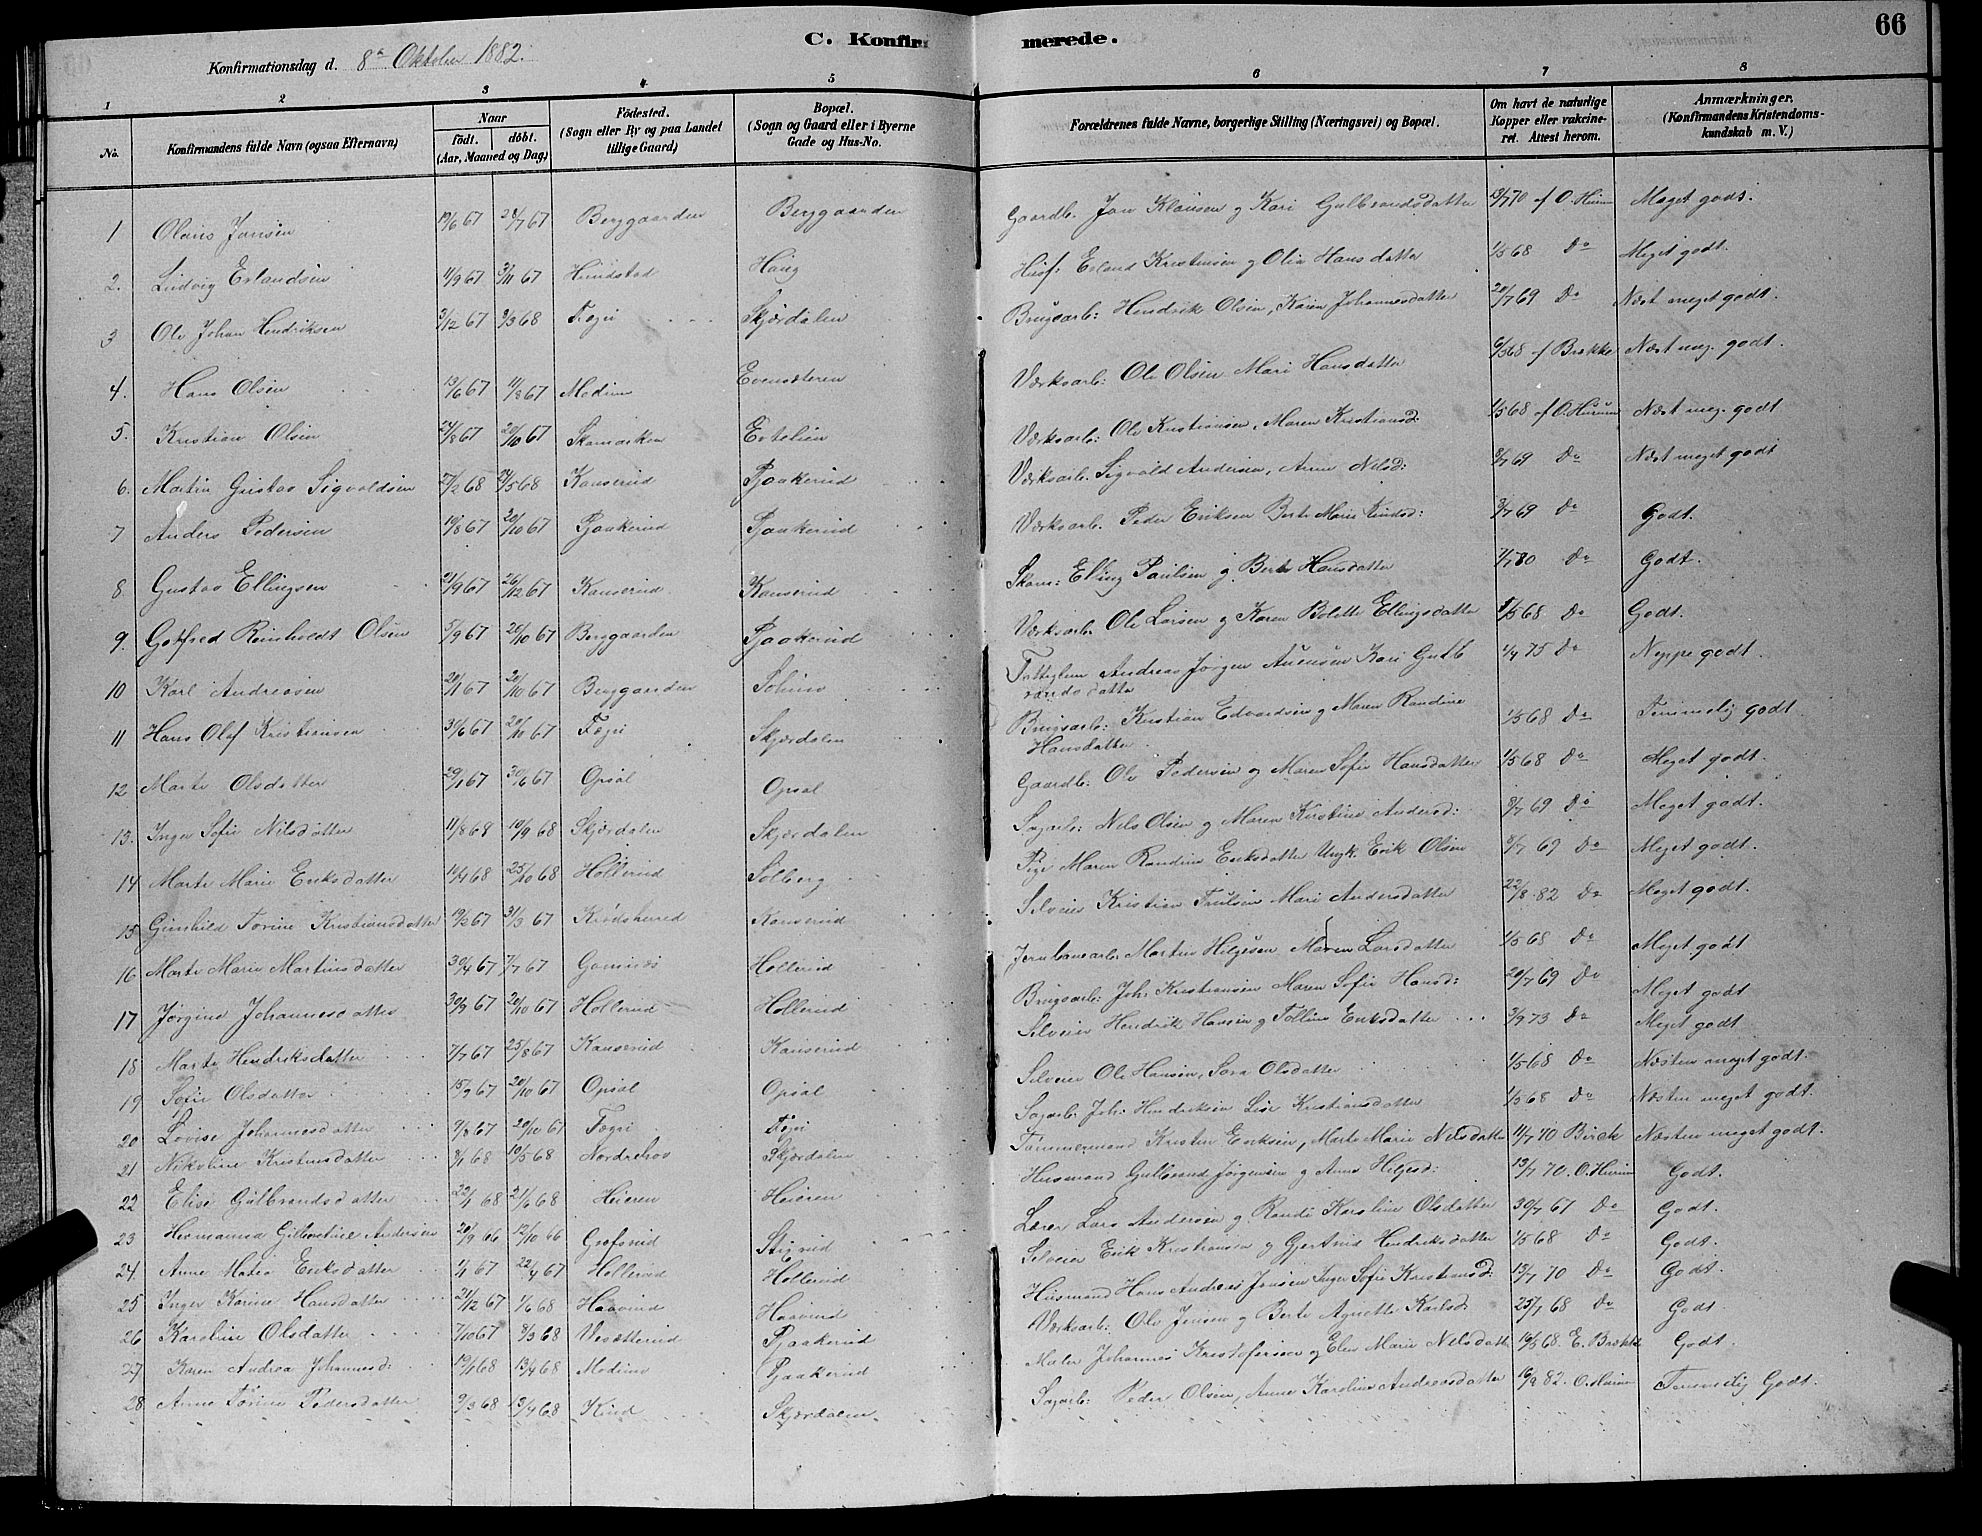 66
C. Konfirmerede.
Konfirmationsdag d. 8de Oktober 1882.
1 2 3 4 5 6 7 8
No. Konfirmandens fulde Navn (ogsaa Efternavn) Naar födt. döbt. (Aar, Maaned og Dag) Födested. (Sogn eller By og paa Landet tillige Gaard) Bopæl. (Sogn og Gaard eller i Byerne Gade og Hus-No. Forældrenes fulde Navne, borgerlige Stilling (Næringsvei) og Bopæl. Om havt de naturlige Kopper eller vaccineret. Attest herom. Anmærkninger. (Konfirmandens Kristendomskundskab m. V.)
1 Olaus Jansen 19/6 67 28/7 67 Berggaarden Berggaarden Gaardb. Jan Klausen og Kari Gulbrandsdatter 13/7 70 af O. Hurum Meget godt.
2. Ludvig Erlandsen 11/9 67 3/11 67 Hundstad Haug Husf: Erland Kristensen og Olia Hansdatter 1/5 68 Do Meget godt
3 Ole Johan Hendriksen 3/12 67 9/3 68 Fegri Skjærdalen Brugsarb: Hendrik Olsen, Karen Johannesdatter 20/7 69 Do Næst meget godt.
4. Hans Olsen 13/6 67 11/8 67 Modum Evensæteren Værksarb: Ole Olsen Mari Hansdatter 6/5 68 af Brække Næst meg. godt.
5. Kristian Olsen 24/8 67 20/10 67 Værksarb: Ole Kristiansen, Maren Kristiansd. 1/5 68 af O. Hurum Næst meg. godt
6. Martin Gustav Sigvaldsen 27/2 68 24/5 68 Kanserud Pjaakerud Værksarb. Sigvald Andersen, Anne Nilsd: 3/7 69 Do Næst meget godt
7 Anders Pedersen 19/8 67 20/10 67 Pjaakerud Pjaakerud Værksarb. Peder Eriksen Berte Marie 3/7 69 Do Godt.
8 Gustav Ellingsen 21/9 67 26/12 67 Kanserud Kanserud Skom: Elling Paulsen og Berte Hansdatter 7/7 80 Do Godt.
9. Gotfred Reinholdt Olsen 5/9 67 20/10 67 Berggaarden Pjaakerud Værksarb. Ole Larsen og Karen Bolette Ellingsdatter 1/5 68 Do Godt.
10 Karl Andreasen 20/1 67 20/10 67 Berggaarden Solum Fattiglem Andreas Jörgen Kari Gulb
randsdatter 1/4 75 Do Neppe godt.
11 Hans Olaf Kristiansen 30/6 67 20/10 67 Fegri Skjærdalen Brugsarb: Kristian Edvardsen og Maren Randine
Hansdatter 1/5 68 Do Temmelig godt
12 Marte Olsdatter 29/1 67 30/6 67 Opsal Opsal Gaardb: Ole Pedersen og Maren Sofie Hansdatter 1/5 68 Do Meget godt.
13. Inger Sofie Nilsdatter 11/8 68 10/9 68 Skjærdalen Skjærdalen Sagarb: Nils Olsen og Maren Kirstine Andersd: 8/7 69 Do Meget godt.
14 Marte Marie Eriksdatter 19/4 68 25/10 68 Hollerud Solberg Pige Maren Randine Eriksdatter Ungk. Erik Olsen 8/7 69 Do Meget godt.
15 Gunhild Torine Kristiansdatter 19/2 67 31/3 67 Krödsherred Kanserud Selveier Kristian Paulsen Mari Andersdatter 22/8 82 Do Meget godt.
16 Marte Marie Martinsdatter 30/4 67 7/7 67 Gomnæs Hollerud Jernbanearb. Martin Helgesen Maren Larsdatter 1/5 68 Do Meget godt
17 Jörgine Johannesdatter 30/9 67 20/10 67 Hollerud Hollerud Brugsarb: Joh: Kristiansen Maren Sofie Hansd: 20/7 69 Do Meget godt
18 Marte Hendriksdatter 7/7 67 25/8 67 Kanserud Kanserud Selveier Hendrik Hansen og Eriksdatter 3/9 73 Do Meget godt
19 Sofie Olsdatter 15/9 67 20/10 67 Opsal Opsal Selveier Ole Hansen, Sara Olsdatter 1/5 68 Do Næsten meget godt.
20 Lovise Johannesdatter 9/8 67 20/10 67 Fegri Fegri Sagarb. Joh: Hendriksen Lise Kristiansdatter 1/5 68 Do Næsten meget godt.
21 Nikoline Kristensdatter 3/1 68 10/5 68 Norderhov Skjærdalen Tömmermand Kristen Eriksen, Marte Marie Nilsdatter 11/7 70 Birch Næsten meget godt.
22 Elise Gulbrandsdatter 22/1 68 21/6 68 Heieren Heieren Husmand Gulbrand Jörgensen og Anne Helgesd: 13/7 70. O. Hurum Godt.
23 Hermansa Gilbertine Andersen 20/9 66 12/10 66 Grefsrud Stigrud Lærer Lars Andersen og Randi Karoline Olsdatter 30/7 67 Do Godt.
24. Anne Matea Eriksdatter 1/1 67 22/4 67 Hollerud Hollerud Selveier Erik Kristiansen og Gjertrud Hendriksdatter 1/5 68 Do Godt.
25 Inger Karine Hansdatter 21/12 67 1/6 68 Haavind Haavind Husmand Hans Andreas Jensen Inger Sofie Kristiansd: 13/7 70 Do Godt.
26 Karoline Olsdatter 7/10 67 8/3 68 Vesætterud Pjaakerud Værksarb: Ole Jensen og Berte Agnette Karlsd: 25/7 68 Do Godt
27 Karen Andrea Johannesd: 19/1 68 13/4 68 Modum Pjaakerud Maler Johannes Kristofersen og Elen Marie Nilsdatt 16/5 68 E. Brække Godt.
28 Anne Torine Pedersdatter 9/3 68 13/4 68 Skjærdalen Sagarb: Peder Olsen, Anne Karoline Andreasdatter 16/9 82. O. Hurum Temmelig Godt.